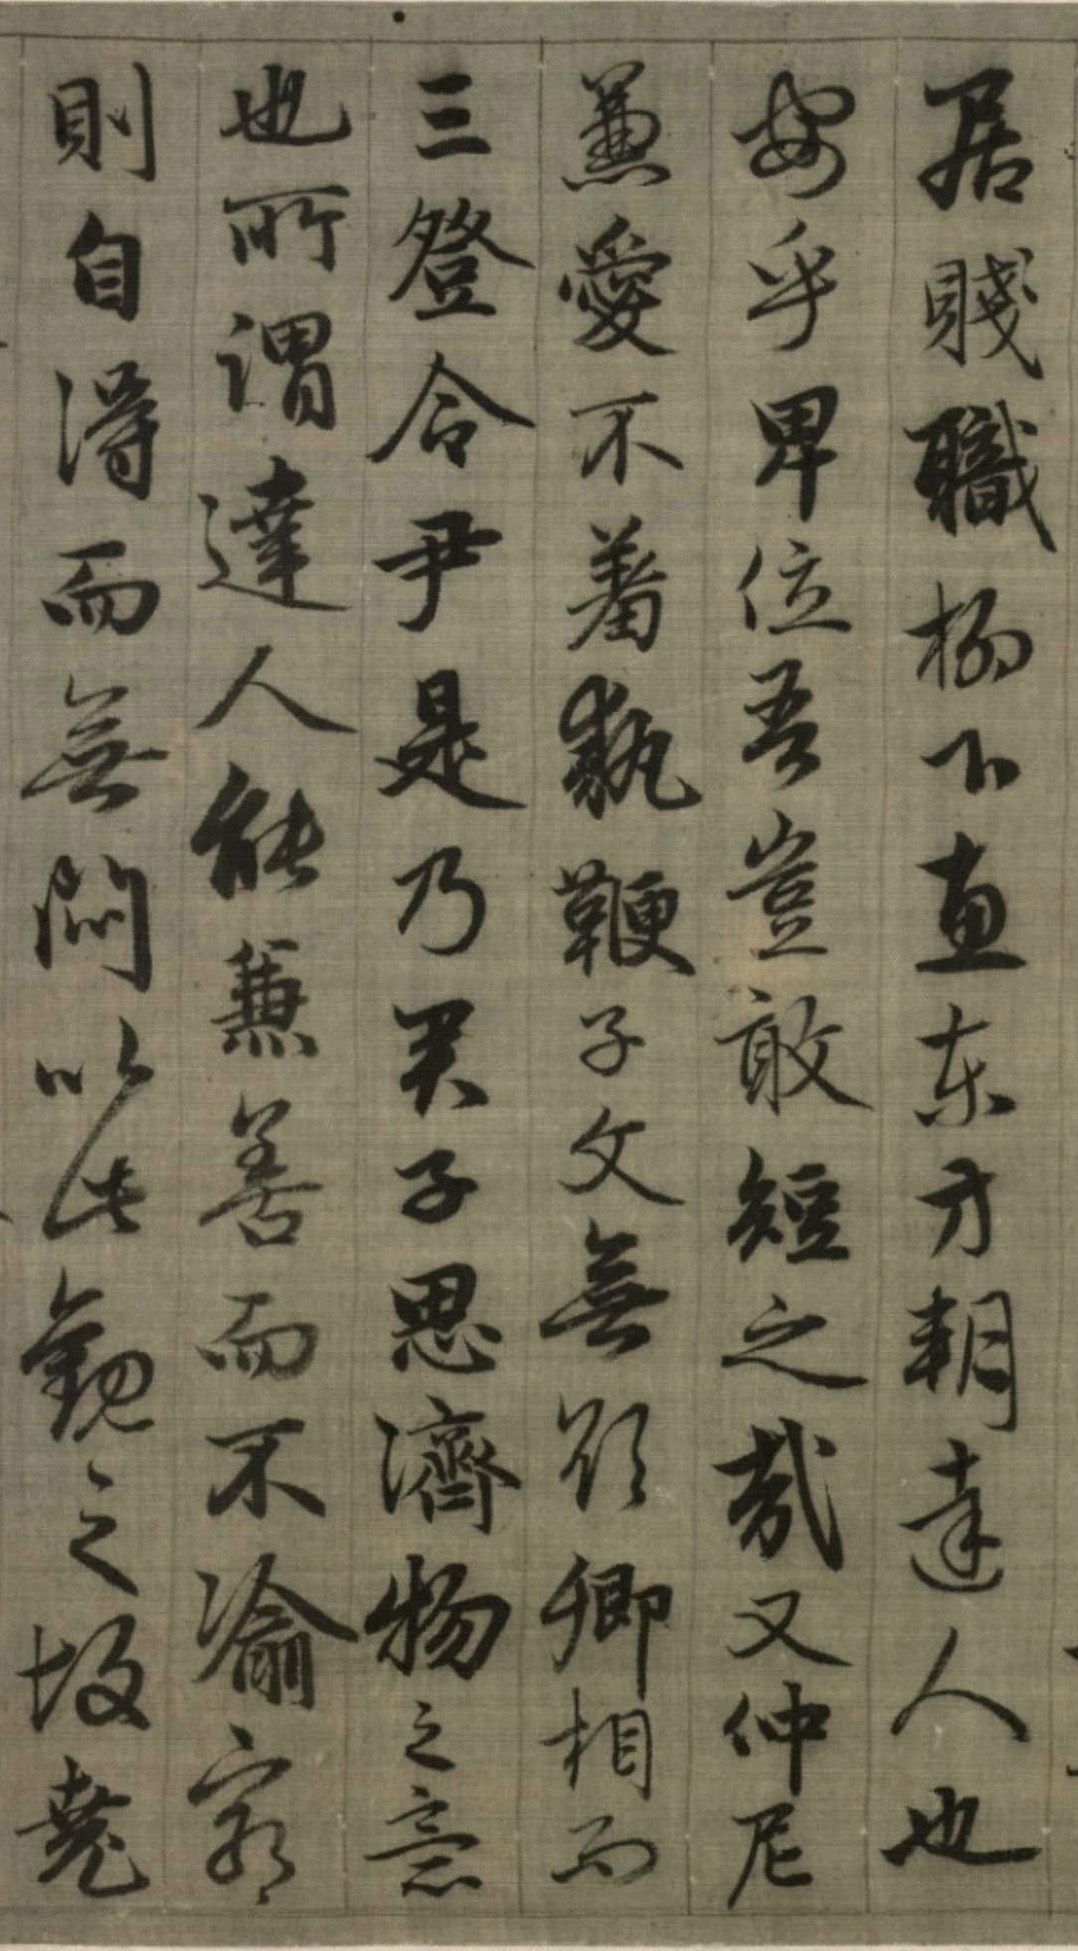 居賤職柳下惠東方朝達人也
安乎卑位吾豈敢短之哉又仲尼
兼愛不羞執鞭子文無欲卿相而
三登令尹是乃君子思濟物之意
也所謂達人能兼善而不渝窮
則自得而無悶以此觀之故堯